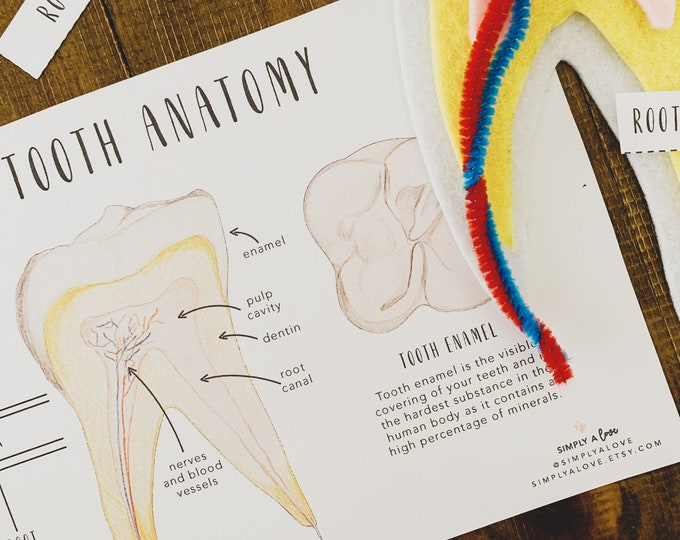 RO
TOOTH ANATOMY
ROOT
enamel
pulp
cavity
dentin
root
canal
nerves
and blood
vessels
TOOTH ENAMEL
Tooth enamel is the visible
covering of your teeth and
the hardest substance in the
human body as it contains a
high percentage of minerals.
SIMPLY A love
@SIMPLYALOVE
SIMPLYALOVE.ETSY.COM
ROOT